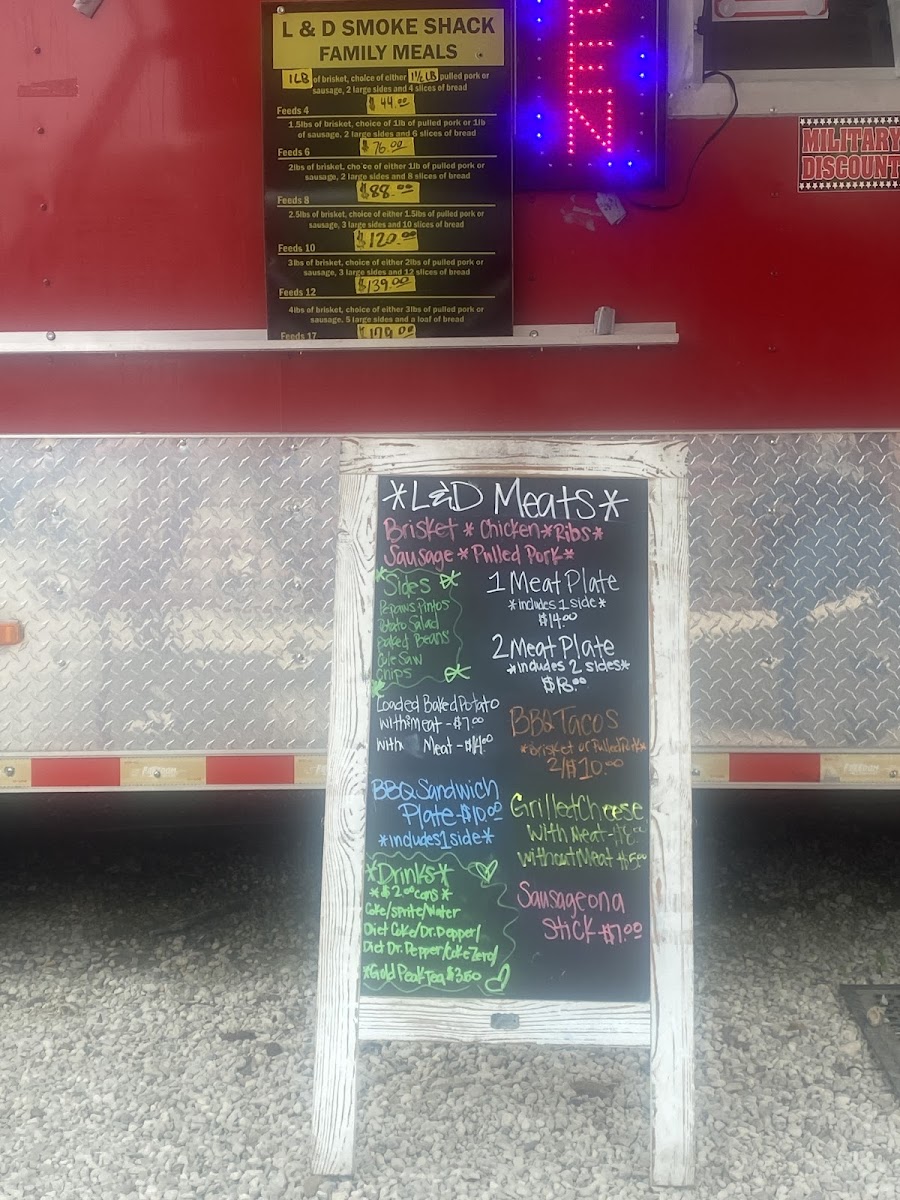 L & D SMOKE SHACK
FAMILY MEALS
1LB of brisket, choice of either 1½ LB pulled pork or
sausage, 2 large sides and 4 slices of bread
$44.00
Feeds 4
1.5lbs of brisket, choice of 1lb of pulled pork or 1lb
of sausage, 2 large sides and 6 slices of bread
$76.00
Feeds 6
2lbs of brisket, choice of either 1lb of pulled pork or
sausage, 2 large sides and 8 slices of bread
$88.00
Feeds 8
2.5lbs of brisket, choice of either 1.5lbs of pulled pork or
sausage, 3 large sides and 10 slices of bread
$120.00
Feeds 10
3lbs of brisket, choice of either 2lbs of pulled pork or
sausage, 3 large sides and 12 slices of bread
$139.00
Feeds 12
4lbs of brisket, choice of either 3lbs of pulled pork or
sausage, 5 large sides and a loaf of bread
$179.00
Feeds 17
PEN
MILITARY
DISCOUNT
*L&D Meats*
Brisket * Chicken * Ribs *
Sausage * Pulled Pork *
*Sides*
Pintos
Potato Salad
Baked Beans
Cole Saw
Chips
1 Meat Plate
*includes 1 side*
$14.00
2 Meat Plate
*includes 2 sides*
Loaded Baked Potato
Meat - $7.00
with Meat - $14.00
BBQ Tacos
*Brisket or Pulled Pork*
2/$10.00
BBQ Sandwich
Plate - $10.00
*includes 1 side*
Grilled Cheese
With Meat -
without Meat $5.00
*Drinks*
*$2.00 cans*
Coke/Sprite/Water
Diet Coke/Dr. Pepper/
Diet Dr. Pepper/Coke Zero/
*Gold Peak Tea $3.50
Sausage on a
Stick - $7.00